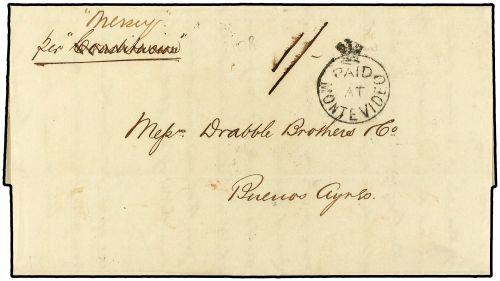 "Mersey"
per "Constitucion"
1/-
PAID
AT
MONTEVIDEO
Messrs Drabble Brothers & Co
Buenos Ayres.